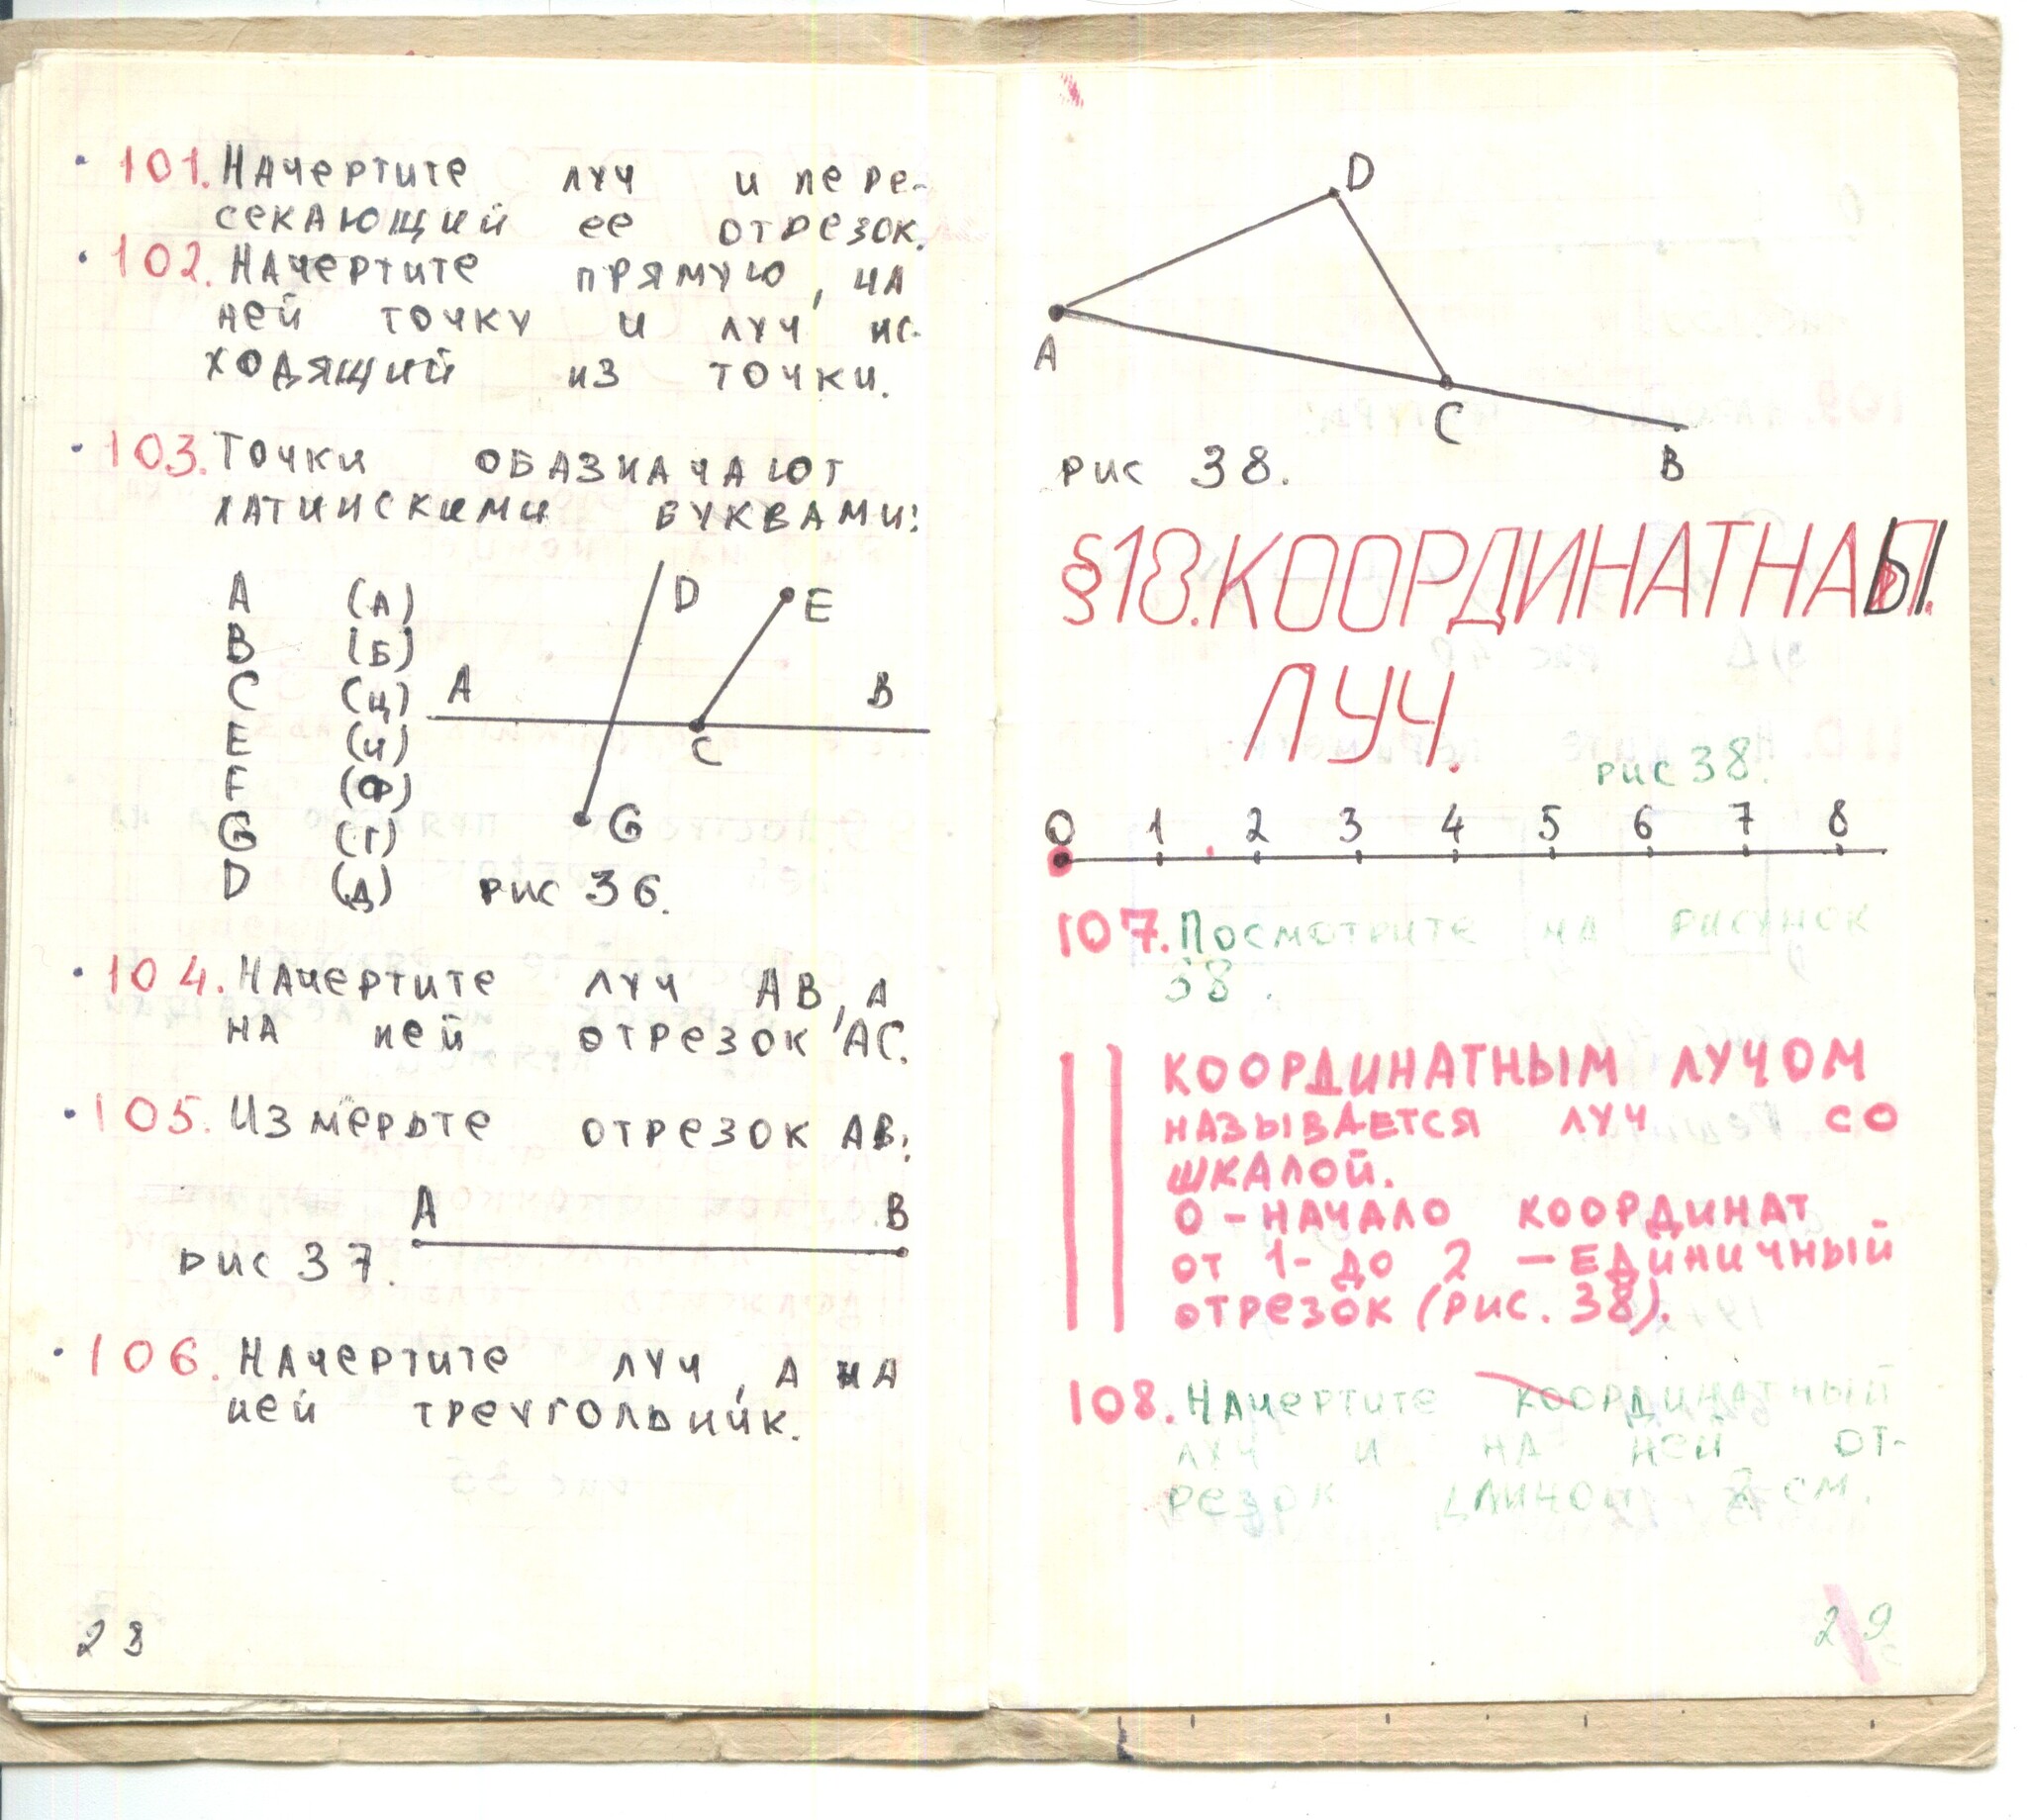 101. Начертите луч и пере-
секающий ее отрезок.
102. Начертите прямую, на
ней точку и луч ис-
ходящий из точки.
103. Точки обазначают
латинскими буквами:
A (А)
B (Б)
C (Ц)
E (И)
F (Ф)
G (Г)
D (Д)
D
E
A
B
C
G
рис 36.
104. Начертите луч AB, а
на ней отрезок AC.
105. Измерьте отрезок AB:
A B
рис 37.
106. Начертите луч, а на
ней треугольник.
28
D
A
C
B
рис 38.
§18. КООРДИНАТНЫЙ
ЛУЧ.
рис 38.
0 1 2 3 4 5 6 7 8
107. Посмотрите на рисунок
38.
КООРДИНАТНЫМ ЛУЧОМ
НАЗЫВАЕТСЯ ЛУЧ СО
ШКАЛОЙ.
0 – НАЧАЛО КООРДИНАТ
от 1- до 2 – ЕДИНИЧНЫЙ
отрезок (рис. 38).
108. Начертите координатный
луч и на ней от-
резок длиной 2 см.
29